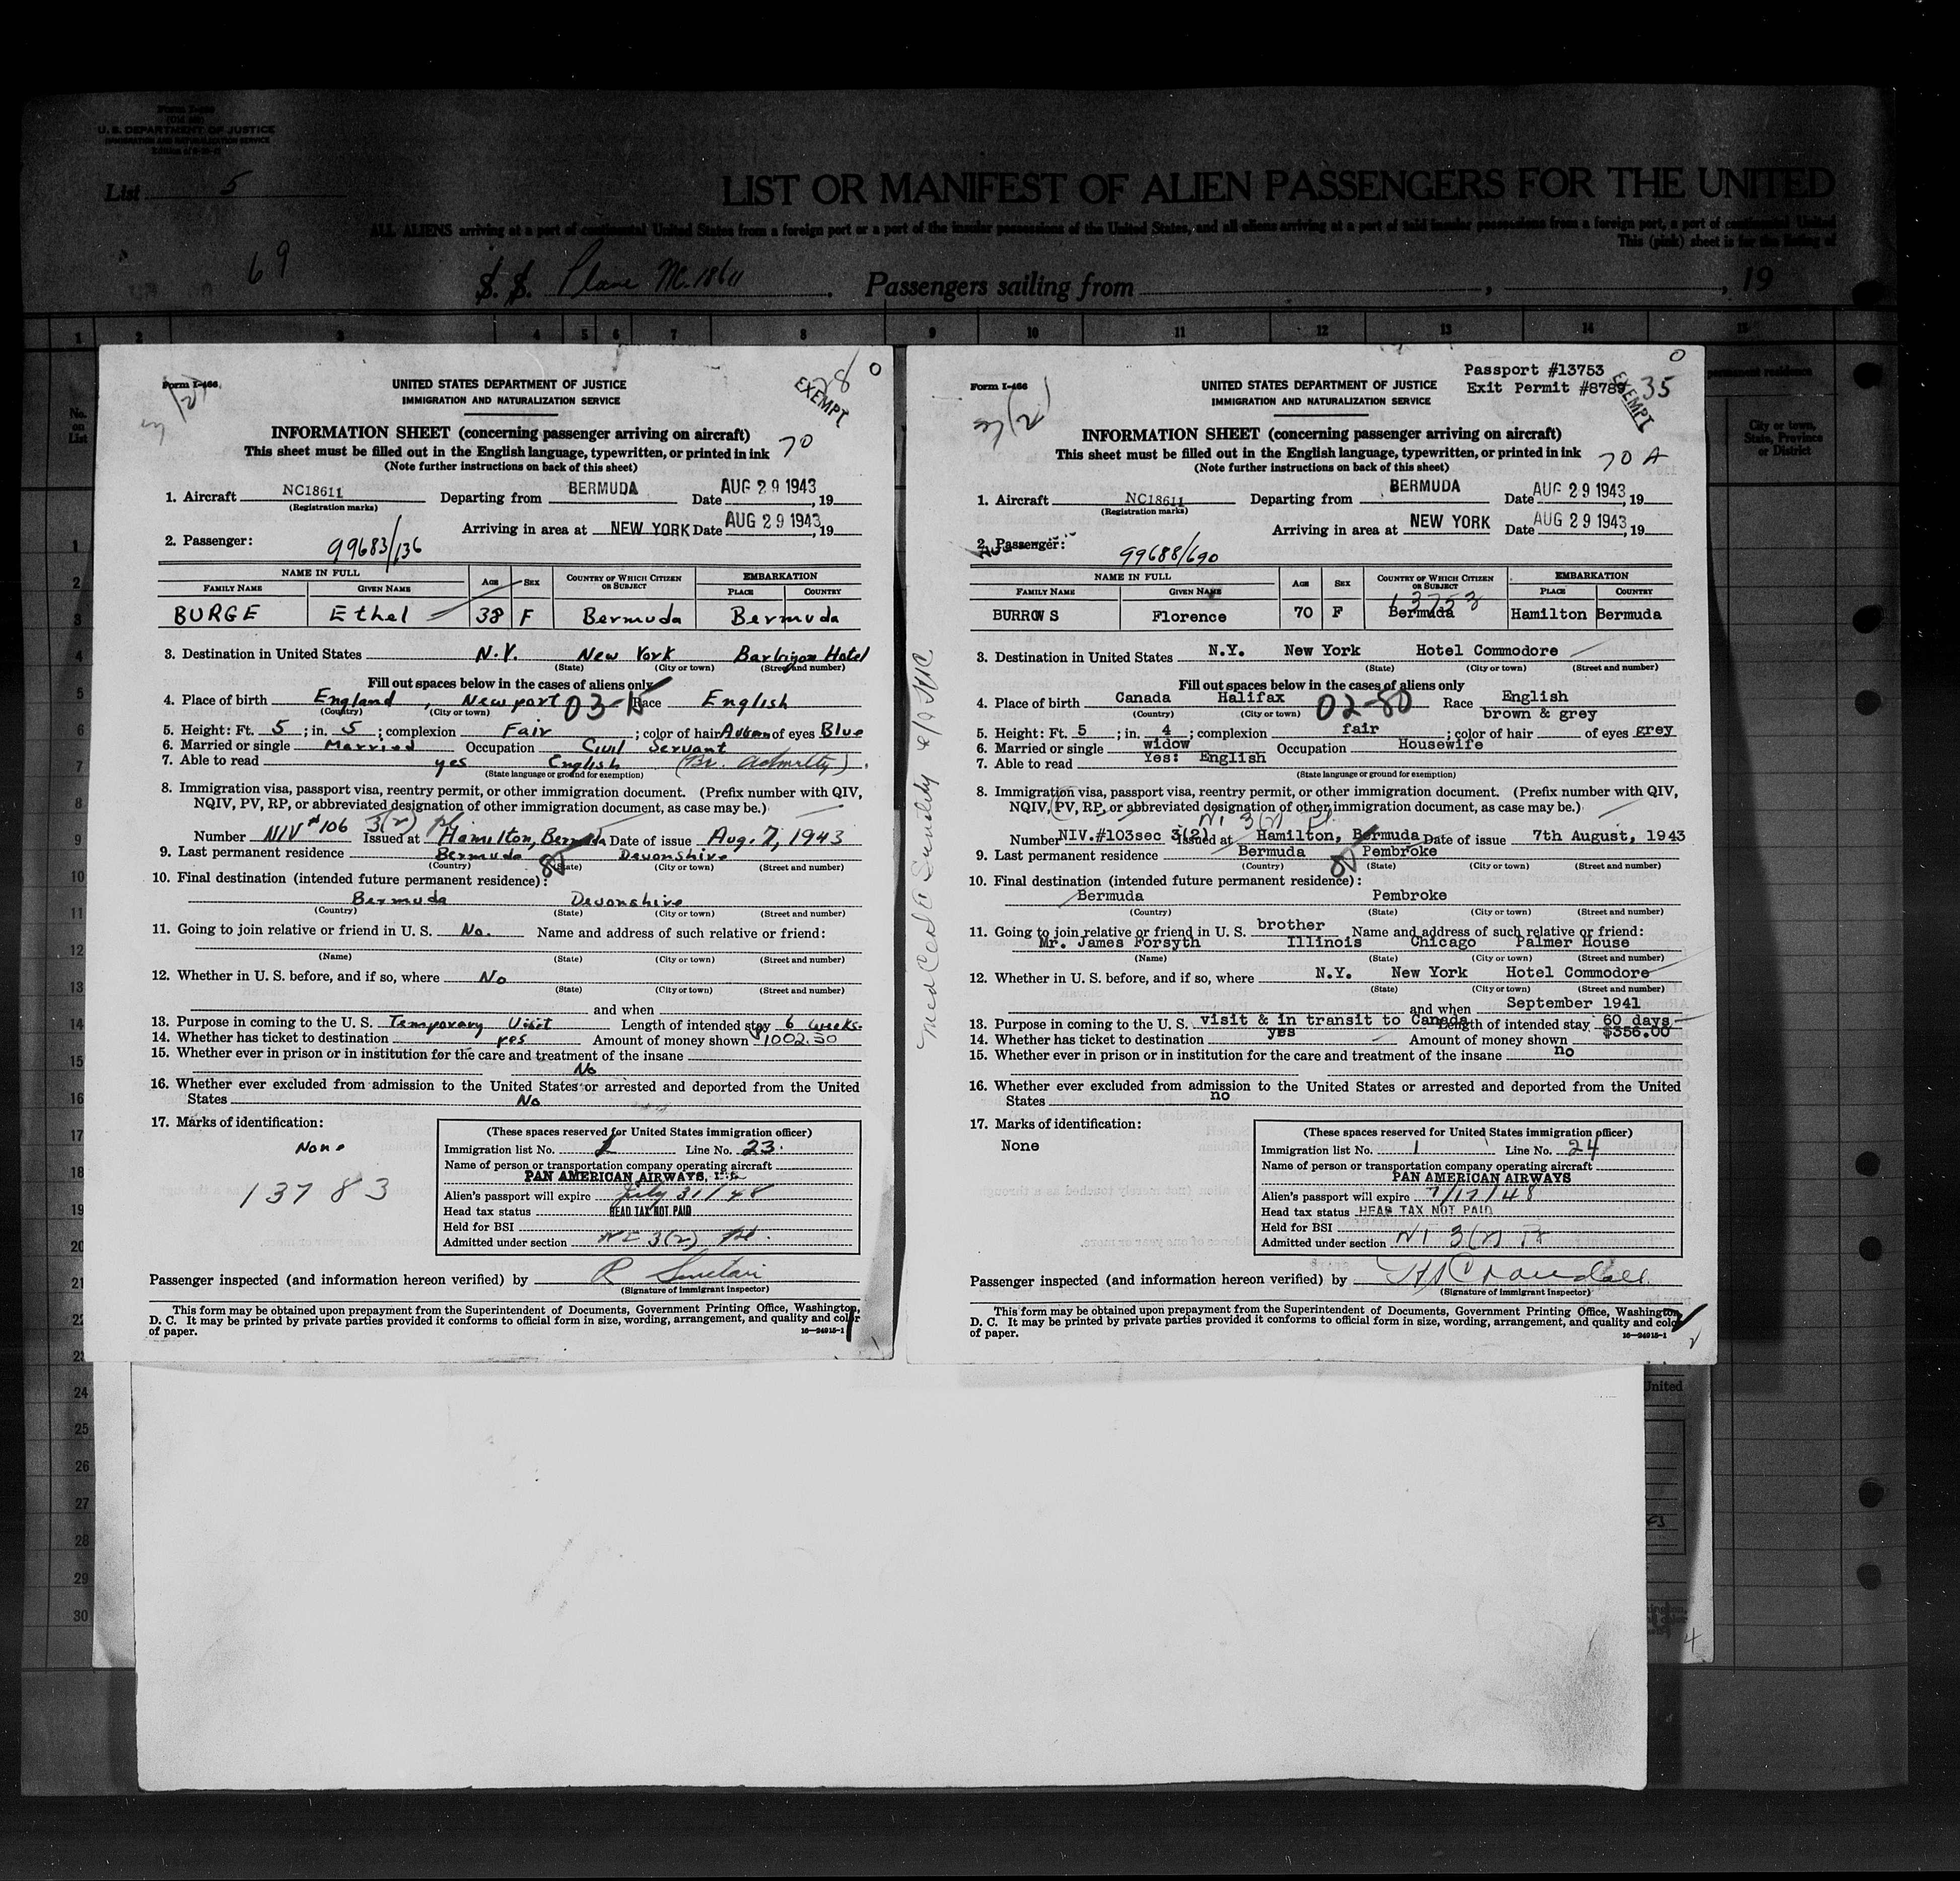 Form I-466
U. S. DEPARTMENT OF JUSTICE
IMMIGRATION AND NATURALIZATION SERVICE
List 5
LIST OR MANIFEST OF ALIEN PASSENGERS FOR THE UNITED
ALL ALIENS arriving at a port of continental United States from a foreign port or a port of the insular possessions of the United States, and all aliens arriving at a port of said insular possessions from a foreign port, a port of continental United
This (pink) sheet is for the listing of
69
S. S. Plane NC 18611 Passengers sailing from , , 19
1 2 3 4 5 6 7 8 9 10 11 12 13 14 15
No. on List
permanent residence
City or town, State, Province or District
Form I-466
3(2)
28
0
EXEMPT
UNITED STATES DEPARTMENT OF JUSTICE
IMMIGRATION AND NATURALIZATION SERVICE
INFORMATION SHEET (concerning passenger arriving on aircraft)
70
This sheet must be filled out in the English language, typewritten, or printed in ink
(Note further instructions on back of this sheet)
1. Aircraft NC18611 Departing from BERMUDA Date AUG 29 1943, 19
(Registration marks)
Arriving in area at NEW YORK Date AUG 29 1943, 19
2. Passenger: 99683/136
NAME IN FULL AGE SEX COUNTRY OF WHICH CITIZEN OR SUBJECT EMBARKATION
FAMILY NAME GIVEN NAME PLACE COUNTRY
BURGE Ethel 38 F Bermuda Bermuda
3. Destination in United States N.Y. New York Barbizon Hotel
(State) (City or town) (Street and number)
Fill out spaces below in the cases of aliens only
4. Place of birth England, Newport 03-15 Race English
(Country) (City or town)
5. Height: Ft. 5; in. 5; complexion Fair; color of hair Auburn of eyes Blue
6. Married or single Married Occupation Civil Servant
7. Able to read yes English (Br. Admirlty)
(State language or ground for exemption)
8. Immigration visa, passport visa, reentry permit, or other immigration document. (Prefix number with QIV,
NQIV, PV, RP, or abbreviated designation of other immigration document, as case may be.)
Number NIV #106 3(2) pl Issued at Hamilton, Bermuda Date of issue Aug. 7, 1943
9. Last permanent residence Bermuda 80 Devonshire
(Country) (State) (City or town) (Street and number)
10. Final destination (intended future permanent residence):
Bermuda Devonshire
(Country) (State) (City or town) (Street and number)
11. Going to join relative or friend in U. S. No. Name and address of such relative or friend:
(Name) (State) (City or town) (Street and number)
12. Whether in U. S. before, and if so, where No
(State) (City or town) (Street and number)
and when
13. Purpose in coming to the U. S. Temporary Visit Length of intended stay 6 weeks.
14. Whether has ticket to destination yes Amount of money shown $1002.50
15. Whether ever in prison or in institution for the care and treatment of the insane
No
16. Whether ever excluded from admission to the United States or arrested and deported from the United
States No
17. Marks of identification:
None
13783
(These spaces reserved for United States immigration officer)
Immigration list No. 2 Line No. 23
Name of person or transportation company operating aircraft
PAN AMERICAN AIRWAYS, Inc
Alien's passport will expire July 31/48
Head tax status HEAD TAX NOT PAID
Held for BSI
Admitted under section NI 3(2)
Passenger inspected (and information hereon verified) by R Sinclair
(Signature of immigrant inspector)
This form may be obtained upon prepayment from the Superintendent of Documents, Government Printing Office, Washington,
D. C. It may be printed by private parties provided it conforms to official form in size, wording, arrangement, and quality and color
of paper.
16—24915-1
Form I-466
3(2)
Passport #13753
Exit Permit #8789
35
0
EXEMPT
UNITED STATES DEPARTMENT OF JUSTICE
IMMIGRATION AND NATURALIZATION SERVICE
INFORMATION SHEET (concerning passenger arriving on aircraft)
This sheet must be filled out in the English language, typewritten, or printed in ink
70 A
(Note further instructions on back of this sheet)
1. Aircraft NC18611 Departing from BERMUDA Date AUG 29 1943, 19
(Registration marks)
Arriving in area at NEW YORK Date AUG 29 1943, 19
2. Passenger: 99688/690
NAME IN FULL AGE SEX COUNTRY OF WHICH CITIZEN OR SUBJECT EMBARKATION
FAMILY NAME GIVEN NAME PLACE COUNTRY
13753
BURROWS Florence 70 F Bermuda Hamilton Bermuda
3. Destination in United States N.Y. New York Hotel Commodore
(State) (City or town) (Street and number)
Fill out spaces below in the cases of aliens only
4. Place of birth Canada Halifax 02-80 Race English
(Country) (City or town) brown & grey
5. Height: Ft. 5; in. 4; complexion fair; color of hair of eyes grey
6. Married or single widow Occupation Housewife
7. Able to read Yes: English
(State language or ground for exemption)
8. Immigration visa, passport visa, reentry permit, or other immigration document. (Prefix number with QIV,
NQIV, PV, RP, or abbreviated designation of other immigration document, as case may be.)
NI 3(2) Pl.
Number NIV.#103sec 3(2) Issued at Hamilton, Bermuda Date of issue 7th August, 1943
9. Last permanent residence Bermuda 80 Pembroke
(Country) (State) (City or town) (Street and number)
10. Final destination (intended future permanent residence):
Bermuda Pembroke
(Country) (State) (City or town) (Street and number)
11. Going to join relative or friend in U. S. brother Name and address of such relative or friend:
Mr. James Forsyth Illinois Chicago Palmer House
(Name) (State) (City or town) (Street and number)
12. Whether in U. S. before, and if so, where N.Y. New York Hotel Commodore
(State) (City or town) (Street and number)
and when September 1941
13. Purpose in coming to the U. S. visit & in transit to Canada Length of intended stay 60 days
14. Whether has ticket to destination yes Amount of money shown $356.00
15. Whether ever in prison or in institution for the care and treatment of the insane no
16. Whether ever excluded from admission to the United States or arrested and deported from the United
States no
17. Marks of identification:
None
(These spaces reserved for United States immigration officer)
Immigration list No. 1 Line No. 24
Name of person or transportation company operating aircraft
PAN AMERICAN AIRWAYS
Alien's passport will expire 7/17/48
Head tax status HEAD TAX NOT PAID
Held for BSI
Admitted under section NI 3(2)
Passenger inspected (and information hereon verified) by
(Signature of immigrant inspector)
This form may be obtained upon prepayment from the Superintendent of Documents, Government Printing Office, Washington,
D. C. It may be printed by private parties provided it conforms to official form in size, wording, arrangement, and quality and color
of paper.
16—24915-1
Med Cert Senility
1
2
3
4
5
6
7
8
9
10
11
12
13
14
15
16
17
18
19
20
21
22
23
24
25
26
27
28
29
30
United
4